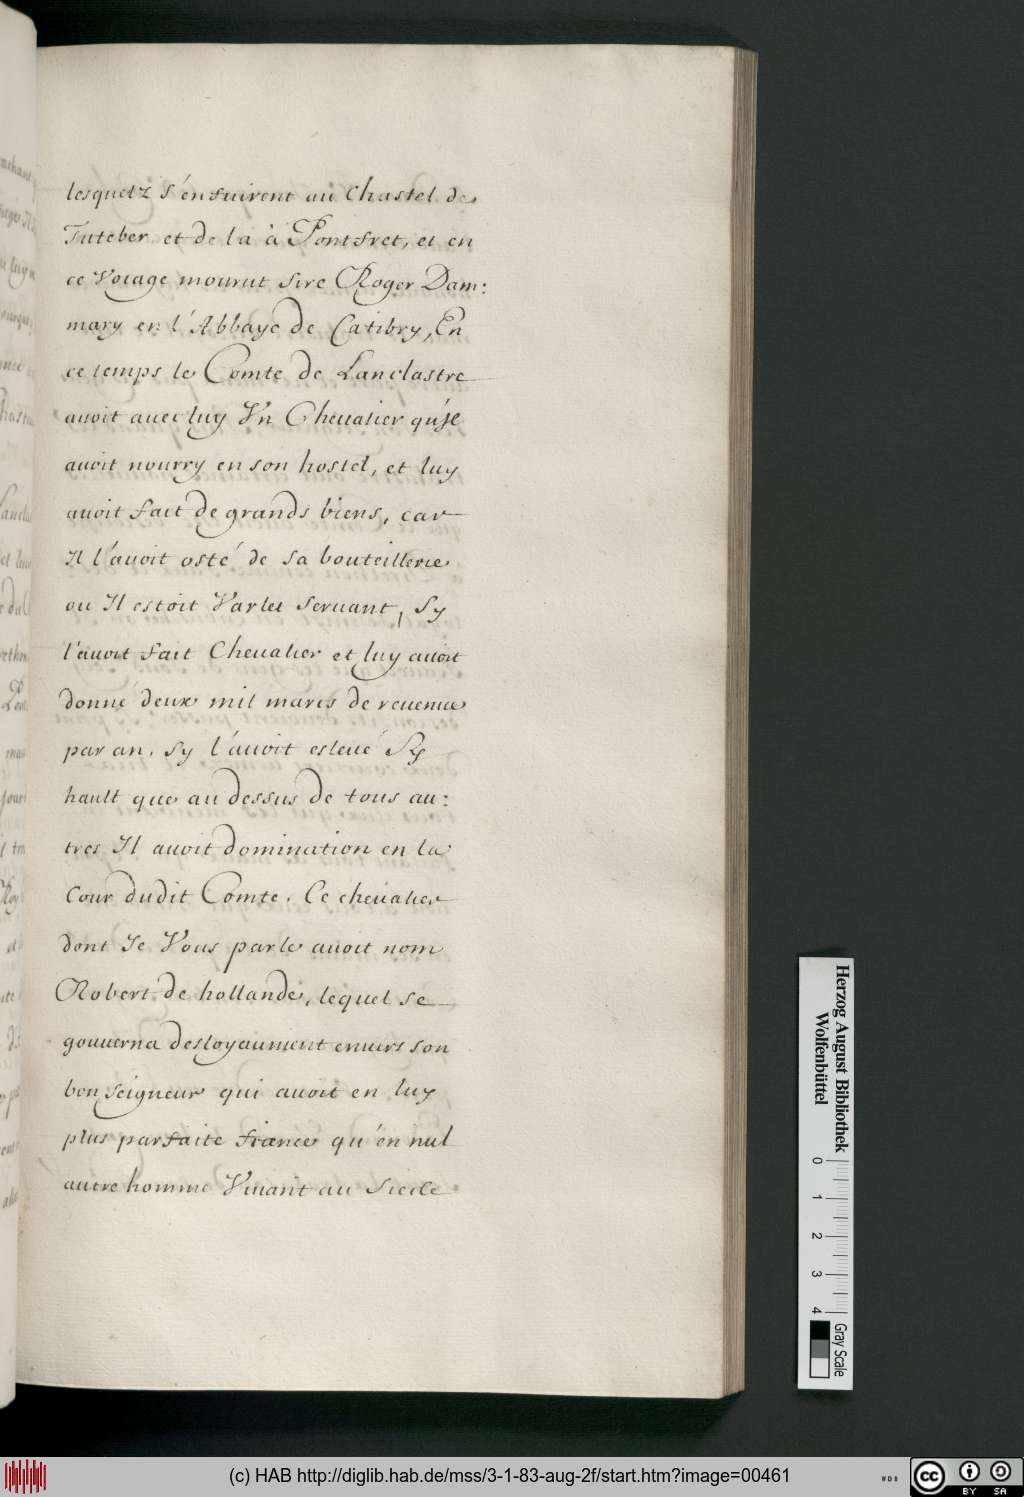 lesquelz s'en fuirent au Chastel de
Tuteber et de la à Pontfret, et en
ce Voiage mourut sire Roger Dam:
mary en l'Abbaye de Catibry, En
ce temps le Comte de Lanclastre
auoit auec luy Vn Cheualier qu'Il
auoit nourry en son hostel, et luy
auoit fait de grands biens, car
Il l'auoit osté de sa bouteillerie
ou Il estoit Varlet seruant, Sy
l'auoit fait Cheualier et luy auoit
donné deux mil marcs de reuenue
par an. Sy l'auoit esleué Sy
hault que au dessus de tous au:
tres Il auoit domination en la
Cour dudit Comte. Ce cheualier
dont Je Vous parle auoit nom
Robert de hollande, lequel se
gouuerna desloyaument enuers son
bon seigneur qui auoit en luy
plus parfaite fiance qu'en nul
autre homme Viuant au siecle
Herzog August Bibliothek
Wolfenbüttel
0 1 2 3 4
Gray Scale
(c) HAB http://diglib.hab.de/mss/3-1-83-aug-2f/start.htm?image=00461
WDB
cc BY SA